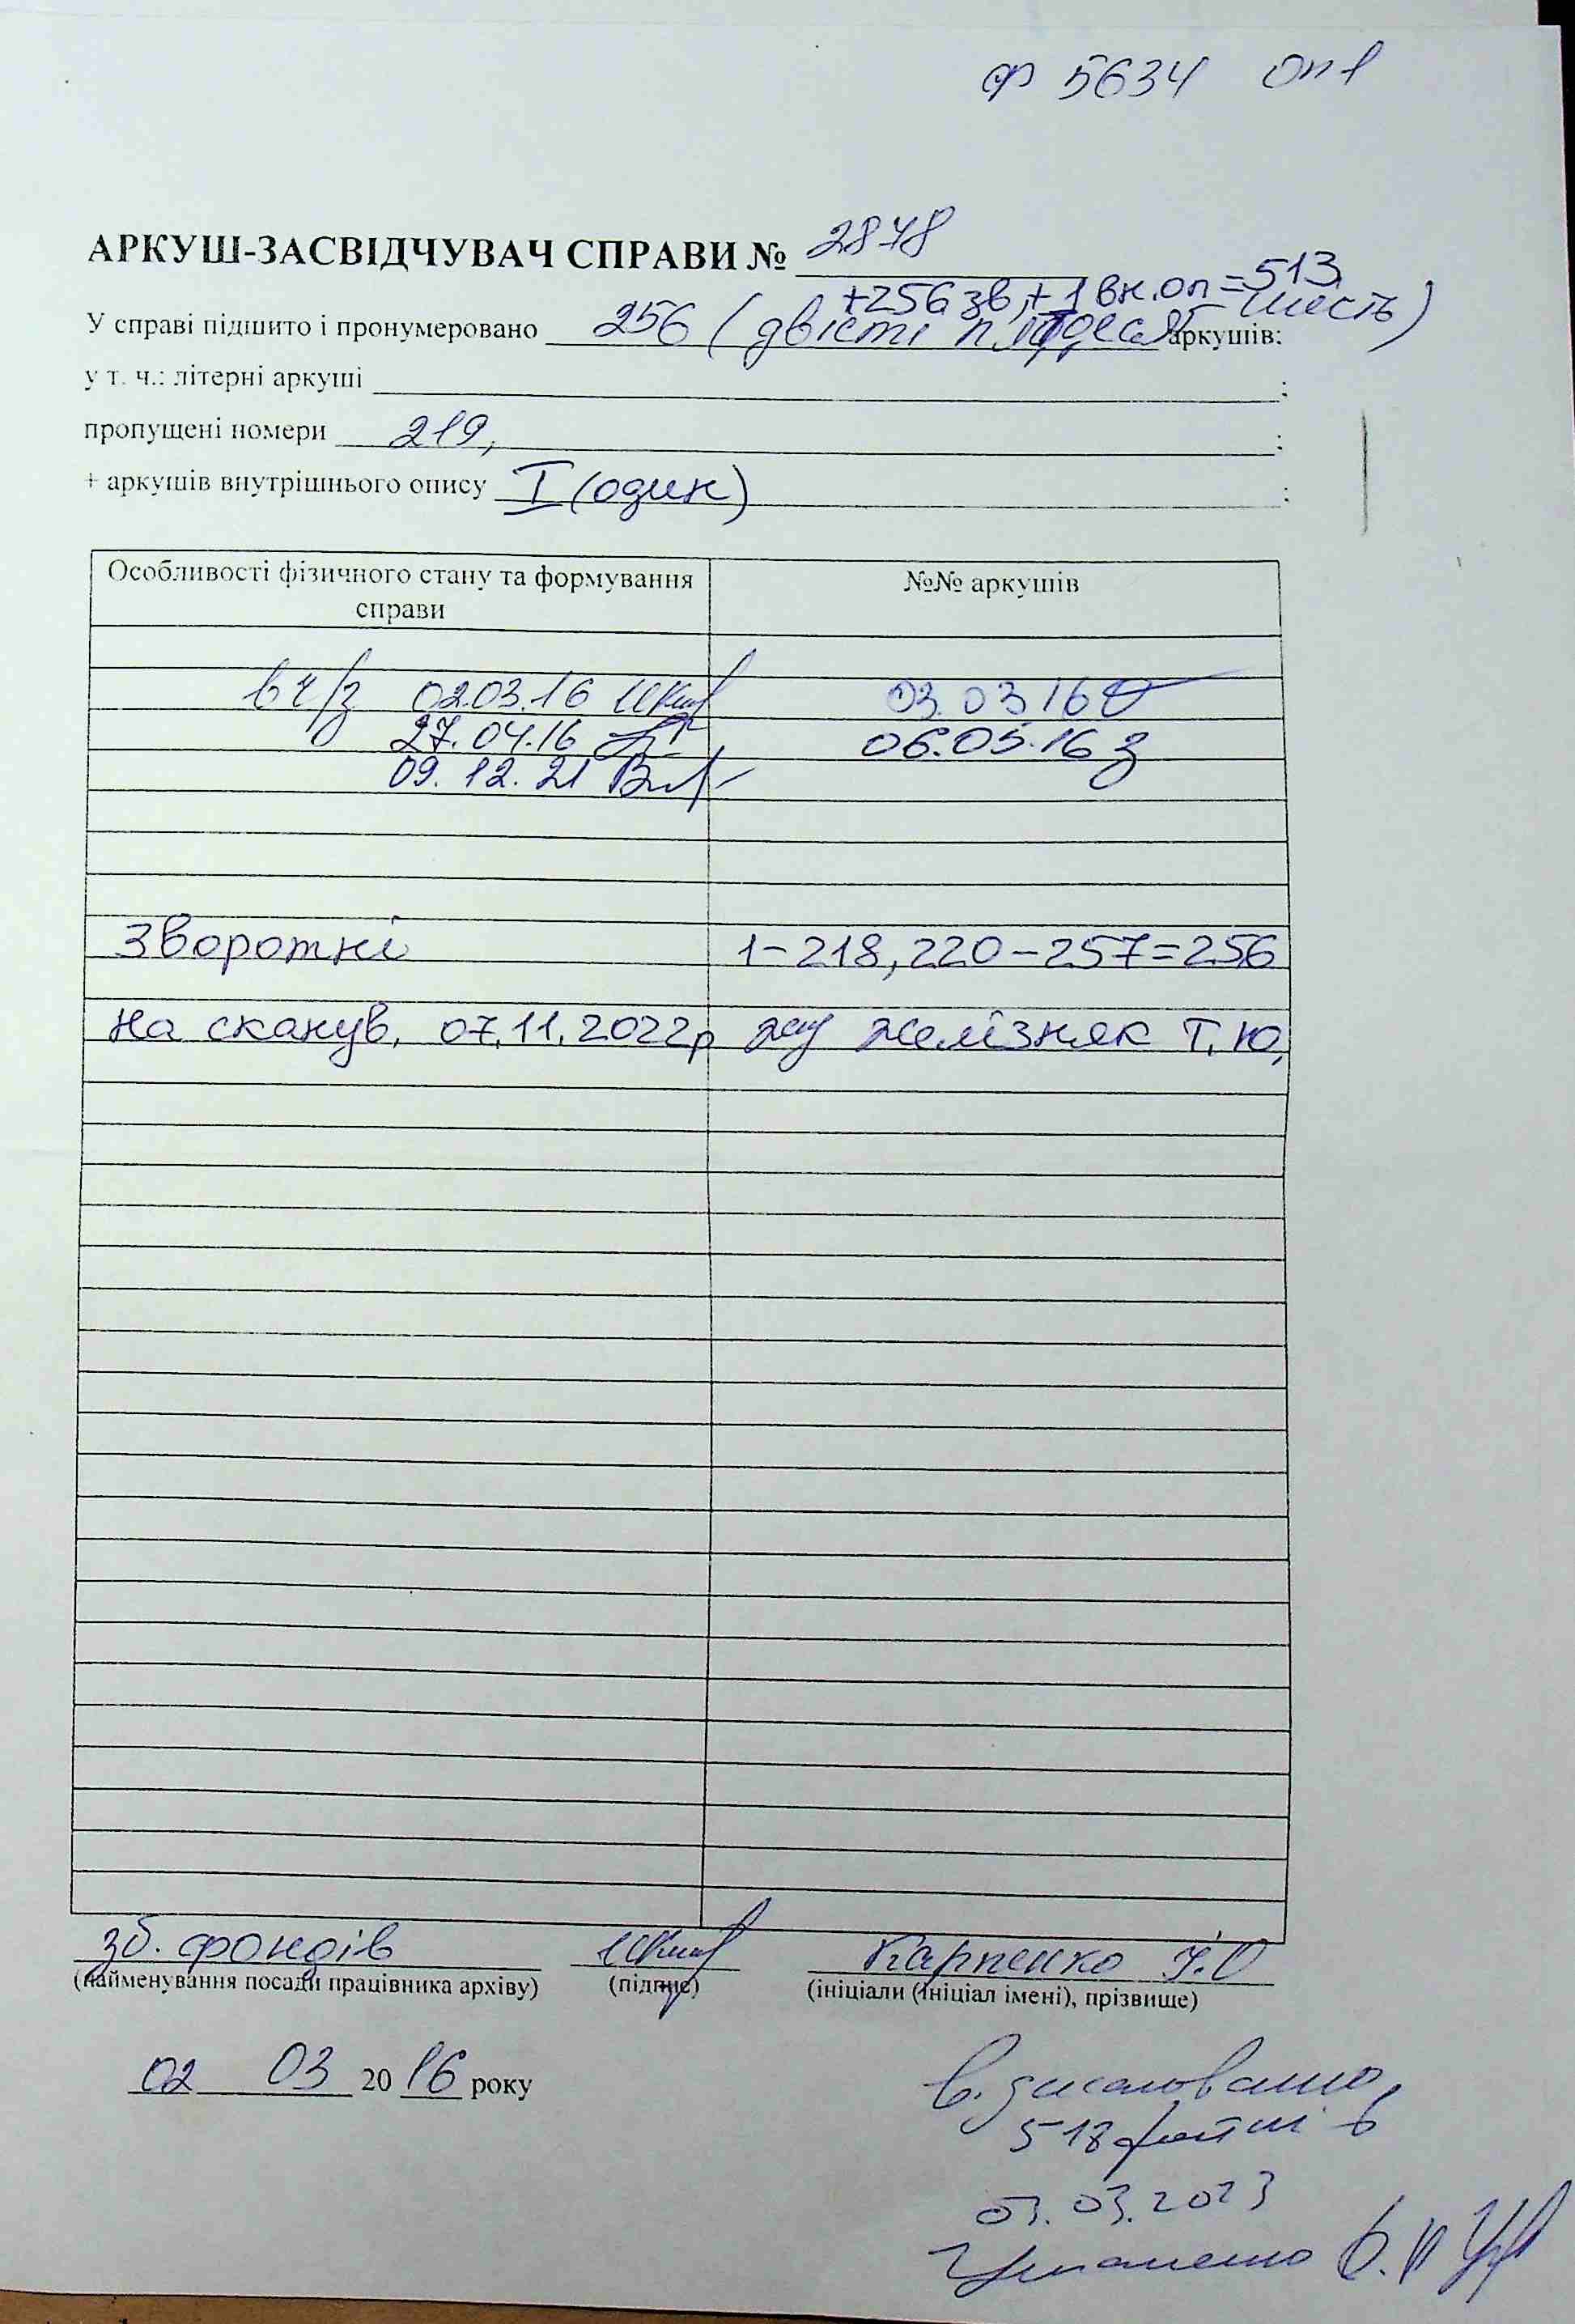 ф 5634 Оп 1
АРКУШ-ЗАСВІДЧУВАЧ СПРАВИ № 2878
+256 зв, + 1 вн.оп = 513
У справі підшито і пронумеровано 256 (двісті п'ятдесят шість) аркушів;
у т. ч.: літерні аркуші ;
пропущені номери 219, ;
+ аркушів внутрішнього опису I (один) ;
Особливості фізичного стану та формування справи
№№ аркушів
в ч/з 02.03.16 03.03 16
27.04.16 06.05.16
09.12.21
Зворотні 1-218, 220-257=256
На сканув. 07.11.2022р Желізняк Т.Ю.
зб. фондів Карпенко І.О
(найменування посади працівника архіву) (підпис) (ініціали (ініціал імені), прізвище)
02 03 20 16 року
518 файлів
03.03.2023